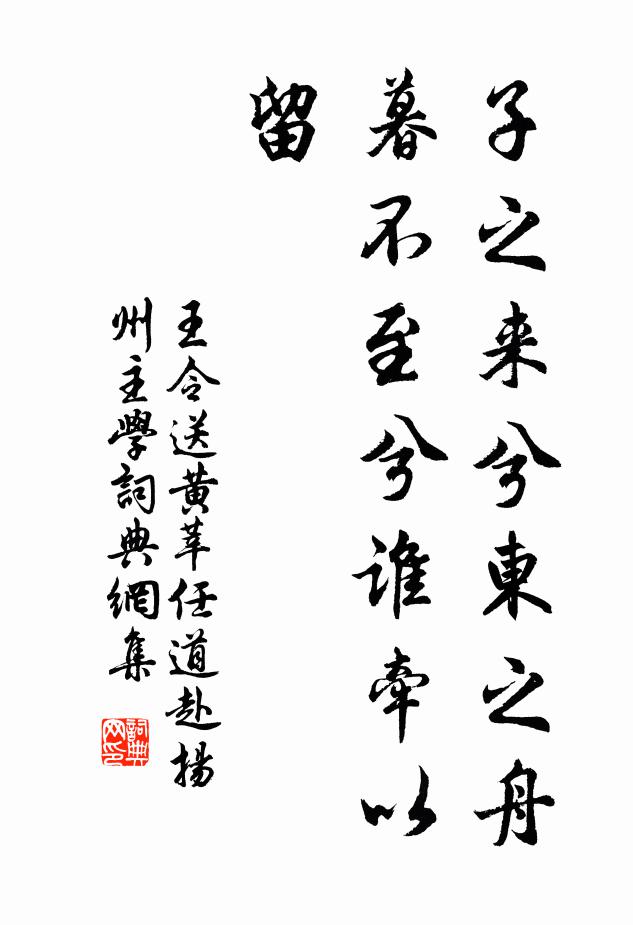 子之来兮東之舟
暮不至兮誰牽以
留
王令送黄莘任道赴揚
州主學詞典網集
詞典网印